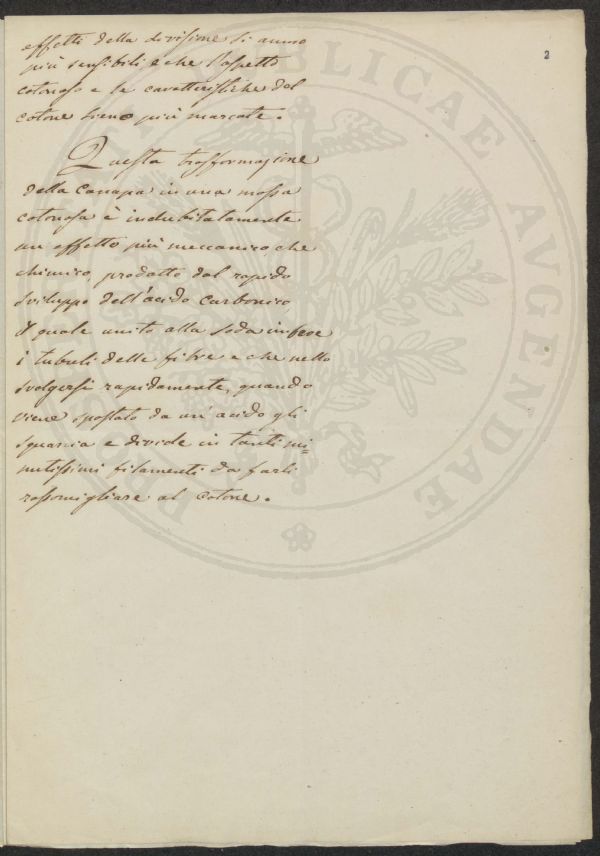 2
effetti della divisione si anno
più sensibili e che l'aspetto
cotonoso e le caratteristiche del
cotone sieno più marcate.
Questa trasformazione
della Canapa in una massa
cotonosa è indubitatamente
un effetto più meccanico, che
chimico, prodotto dal rapido
sviluppo dell'acido Carbonico,
il quale unito alla soda
i tubuli delle fibre e che nello
svolgersi rapidamente, quando
viene spostato da un'acido gli
squarcia e divide in tanti mi=
nutissimi filamenti da farli
rassomigliare al cotone.
PUBLICAE AVGENDAE